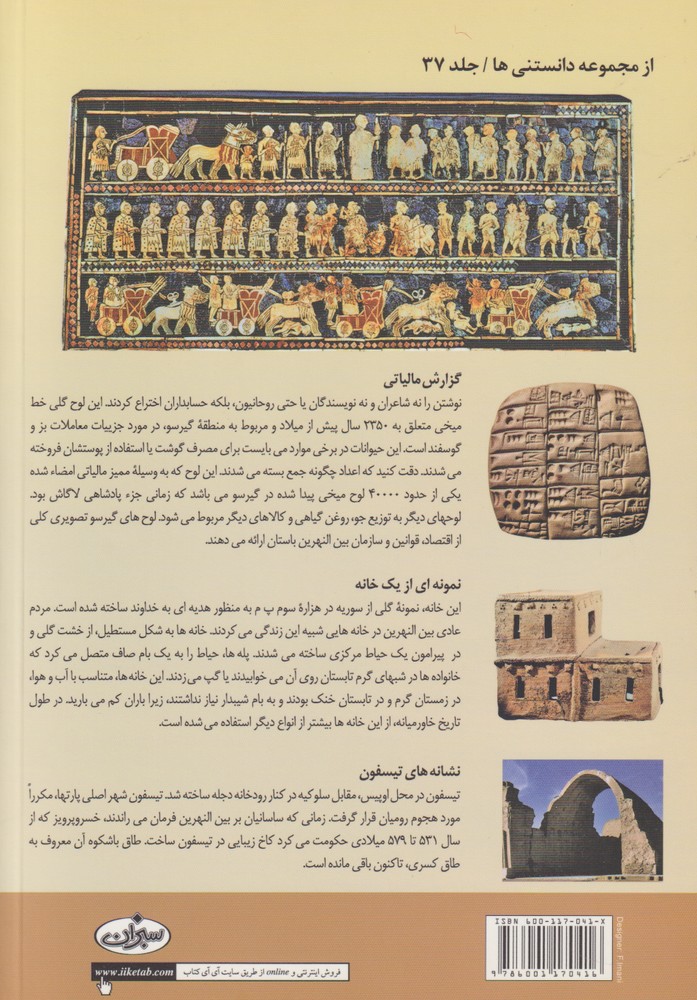 از مجموعه دانستنی ها / جلد ۳۷
گزارش مالیاتی
نوشتن را نه شاعران و نه نویسندگان یا حتی روحانیون، بلکه حسابداران اختراع کردند. این لوح گلی خط
میخی متعلق به ۲۳۵۰ سال پیش از میلاد و مربوط به منطقهٔ گیرسو، در مورد جزییات معاملات بز و
گوسفند است. این حیوانات در برخی موارد می بایست برای مصرف گوشت یا استفاده از پوستشان فروخته
می شدند. دقت کنید که اعداد چگونه جمع بسته می شدند. این لوح که به وسیلهٔ ممیز مالیاتی امضاء شده
یکی از حدود ۴۰۰۰۰ لوح میخی پیدا شده در گیرسو می باشد که زمانی جزء پادشاهی لاگاش بود.
لوحهای دیگر به توزیع جو، روغن گیاهی و کالاهای دیگر مربوط می شود. لوح های گیرسو تصویری کلی
از اقتصاد، قوانین و سازمان بین النهرین باستان ارائه می دهند.
نمونه ای از یک خانه
این خانه، نمونهٔ گلی از سوریه در هزارهٔ سوم پ م به منظور هدیه ای به خداوند ساخته شده است. مردم
عادی بین النهرین در خانه هایی شبیه این زندگی می کردند. خانه ها به شکل مستطیل، از خشت گلی و
در پیرامون یک حیاط مرکزی ساخته می شدند. پله ها، حیاط را به یک بام صاف متصل می کرد که
خانواده ها در شبهای گرم تابستان روی آن می خوابیدند یا گپ می زدند. این خانه‌ها، متناسب با آب و هوا،
در زمستان گرم و در تابستان خنک بودند و به بام شیبدار نیاز نداشتند، زیرا باران کم می بارید. در طول
تاریخ خاورمیانه، از این خانه ها بیشتر از انواع دیگر استفاده می شده است.
نشانه های تیسفون
تیسفون در محل اوپیس، مقابل سلوکیه در کنار رودخانه دجله ساخته شد. تیسفون شهر اصلی پارتها، مکرراً
مورد هجوم رومیان قرار گرفت. زمانی که ساسانیان بر بین النهرین فرمان می راندند، خسروپرویز که از
سال ۵۳۱ تا ۵۷۹ میلادی حکومت می کرد کاخ زیبایی در تیسفون ساخت. طاق باشکوه آن معروف به
طاق کسری، تاکنون باقی مانده است.
سبزان
www.iiketab.com
فروش اینترنتی و online از طریق سایت آی آی کتاب
ISBN 600-117-041-X
9 786001 170416
Designer: F.Imani